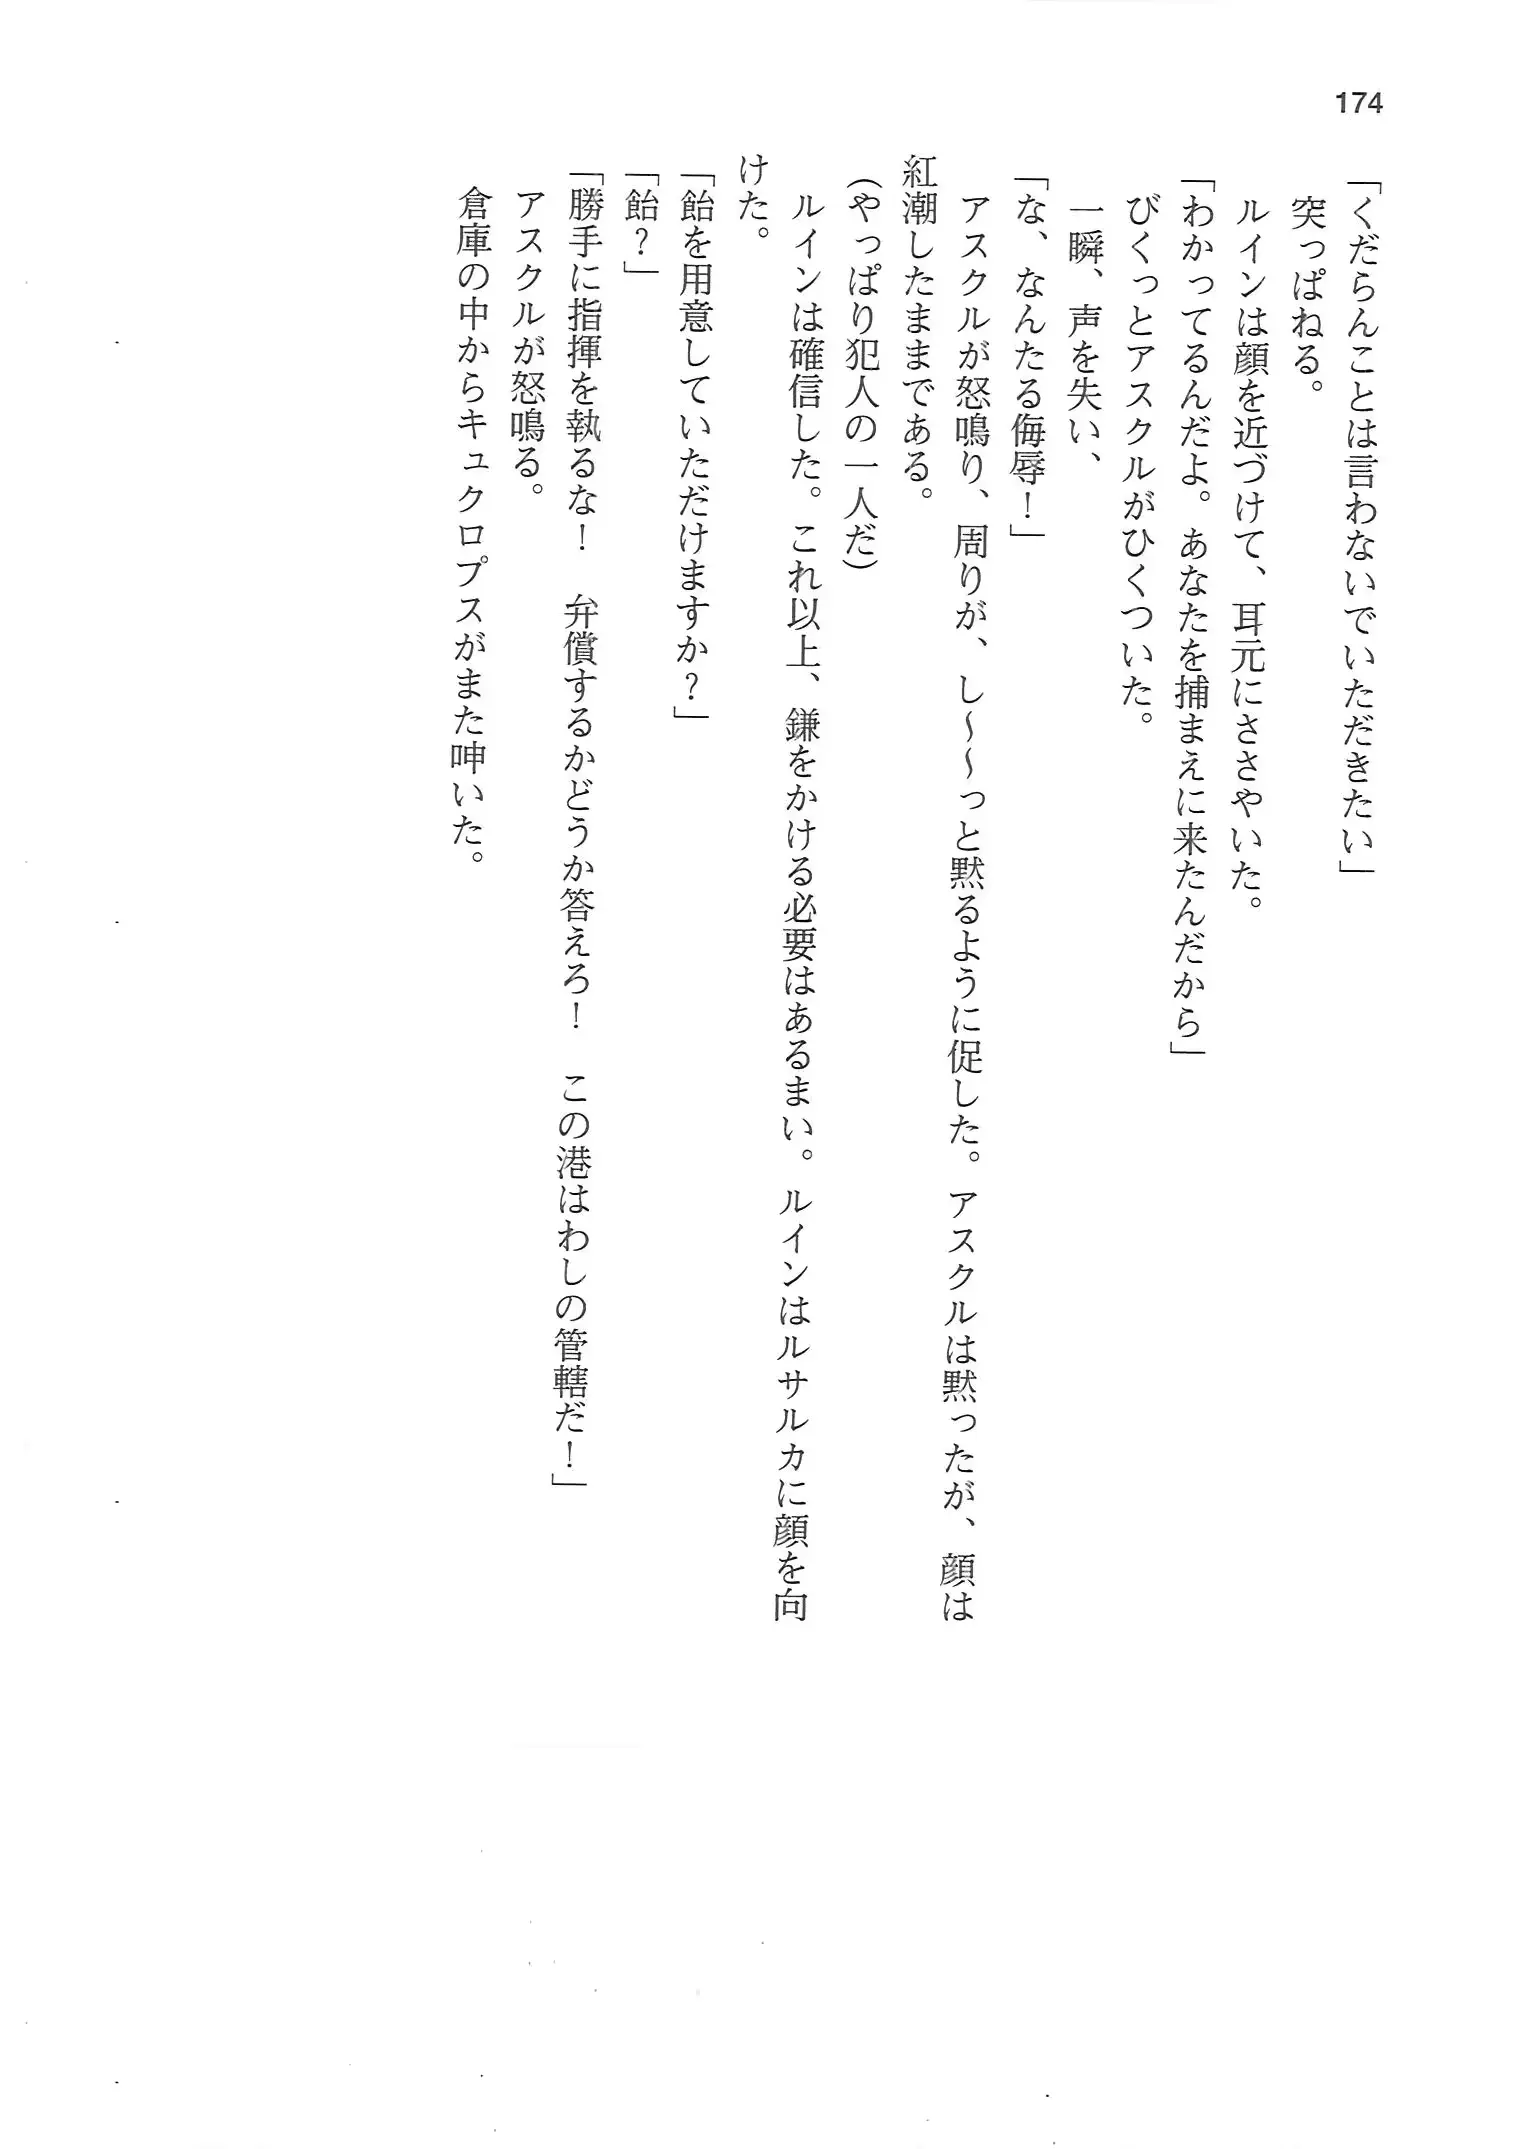 174
「くだらんことは言わないでいただきたい」
　突っぱねる。
　ルインは顔を近づけて、耳元にささやいた。
「わかってるんだよ。あなたを捕まえに来たんだから」
　びくっとアスクルがひくついた。
　一瞬、声を失い、
「な、なんたる侮辱！」
　アスクルが怒鳴り、周りが、し～～っと黙るように促した。アスクルは黙ったが、顔は
紅潮したままである。
（やっぱり犯人の一人だ）
　ルインは確信した。これ以上、鎌をかける必要はあるまい。ルインはルサルカに顔を向
けた。
「飴を用意していただけますか？」
「飴？」
「勝手に指揮を執るな！　弁償するかどうか答えろ！　この港はわしの管轄だ！」
　アスクルが怒鳴る。
　倉庫の中からキュクロプスがまた呻いた。